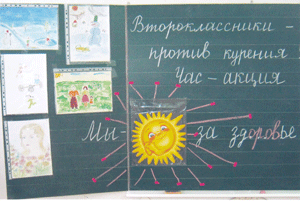 Второклассники -
против курения
Час - акция
Мы - за здоровье